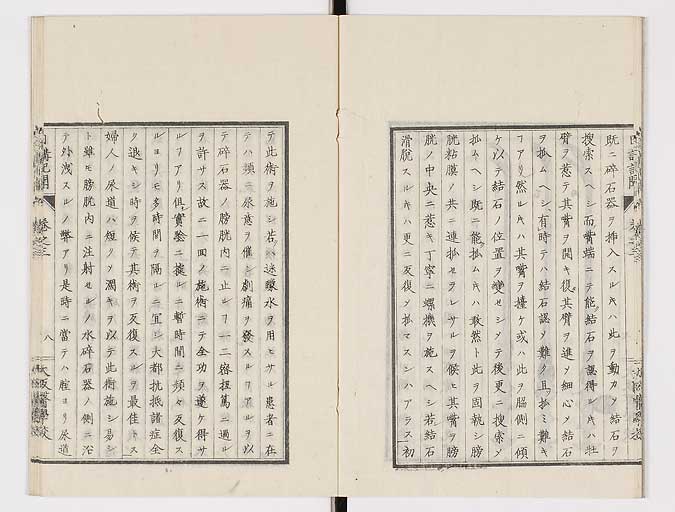 既ニ碎石器ヲ挿入スルキハ此ヲ動カメ結石ヲ
搜索スヘシ而嘴端ニテ能結石ヲ認得ルキハ壮
臂ヲ惹テ其嘴ヲ開キ復其臂ヲ進メ細心メ結石
ヲ拡ムヘシ有時テハ結石認メ難ク且拡ミ難キ
アリ然ルキハ其嘴ヲ擡ケ或ハ此ヲ脇側ニ傾
ケ以テ結石ノ位置ヲ變セシメテ後更ニ搜索メ
拡ムヘシ既ニ能拡ムキハ敢然ト此ヲ固執シ膀
胱粘膜ノ共ニ連拡セラレサルヲ候ヒ其嘴ヲ膀
胱ノ中央ニ惹キ丁寧ニ螺機ヲ施スヘシ若結石
滑脱スルキハ更ニ反復メ拡マスンハアラス初
テ此術ヲ施シ若ハ迷蒙水ヲ用ヒサル患者ニ在
テハ頻ニ尿意ヲ催シ劇痛ヲ發スルアルヲ以
テ碎石器ノ膀胱内ニ止ルヿ一二密扭篤ニ過ル
ヲ許サス故ニ一回ノ施術ニテ全功ヲ遂ケ得サ
ルヿアリ但實驗ニ據ルニ暫時間ニ頻々反復ス
ルヨリモ多時間ヲ隔ルニ宜シ大都抗抵諸症全
ク退キシ時ヲ候テ其術ヲ反復スルヲ最佳トス
婦人ノ尿道ハ短ク乄濶キヲ以テ此術施シ易シ
ト雖モ膀胱内ニ注射セルノ水碎石器ノ側ニ沿
テ外洩スルノ弊アリ是時ニ當テハ腟ヨリ尿道
卷之三
八
大阪醫學校